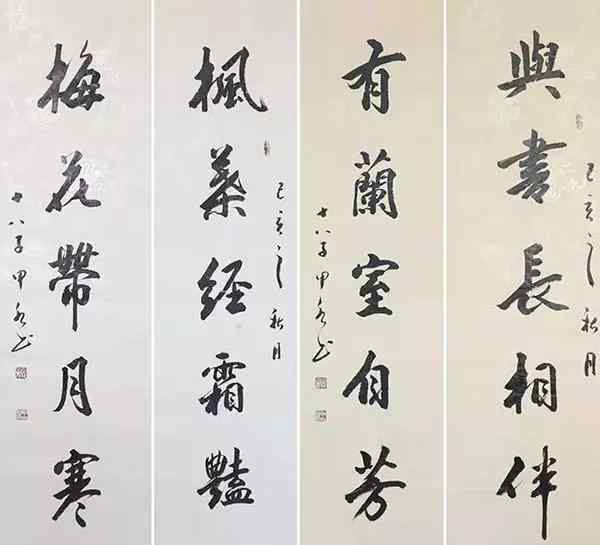 己亥之秋月
與書長相伴
有蘭室自芳
十八子甲
己亥之秋月
楓葉经霜豔
梅花帶月寒
十八子甲